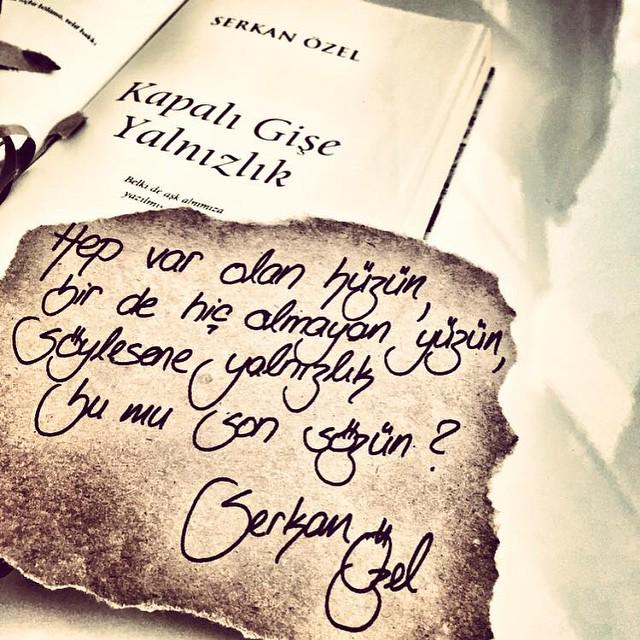 SERKAN ÖZEL
Kapalı Gişe
Yalnızlık
Belki de aşk alnımıza
Hep var olan hüzün,
bir de hiç olmayan yüzün,
söylesene yalnızlık
bu mu son sözün?
Serkan Özel